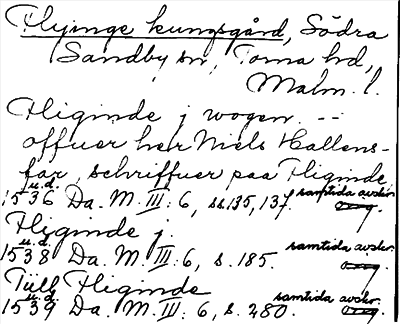 Flyinge kungsgård, Södra
Sandby sn, Torna hd,
Malm. l.
Fliginde j wogen. --
offuer her Niels Hallens-
far, schriffuer paa Fliginde
u.d. samtida avskr.
1536 Da. M. III: 6, ss. 135, 137.
Fliginde j.
u.d. samtida avskr.
1538 Da. M. III: 6, s. 185.
Tüll Fliginde
u.d. samtida avskr.
1539 Da. M. III: 6, s. 280.